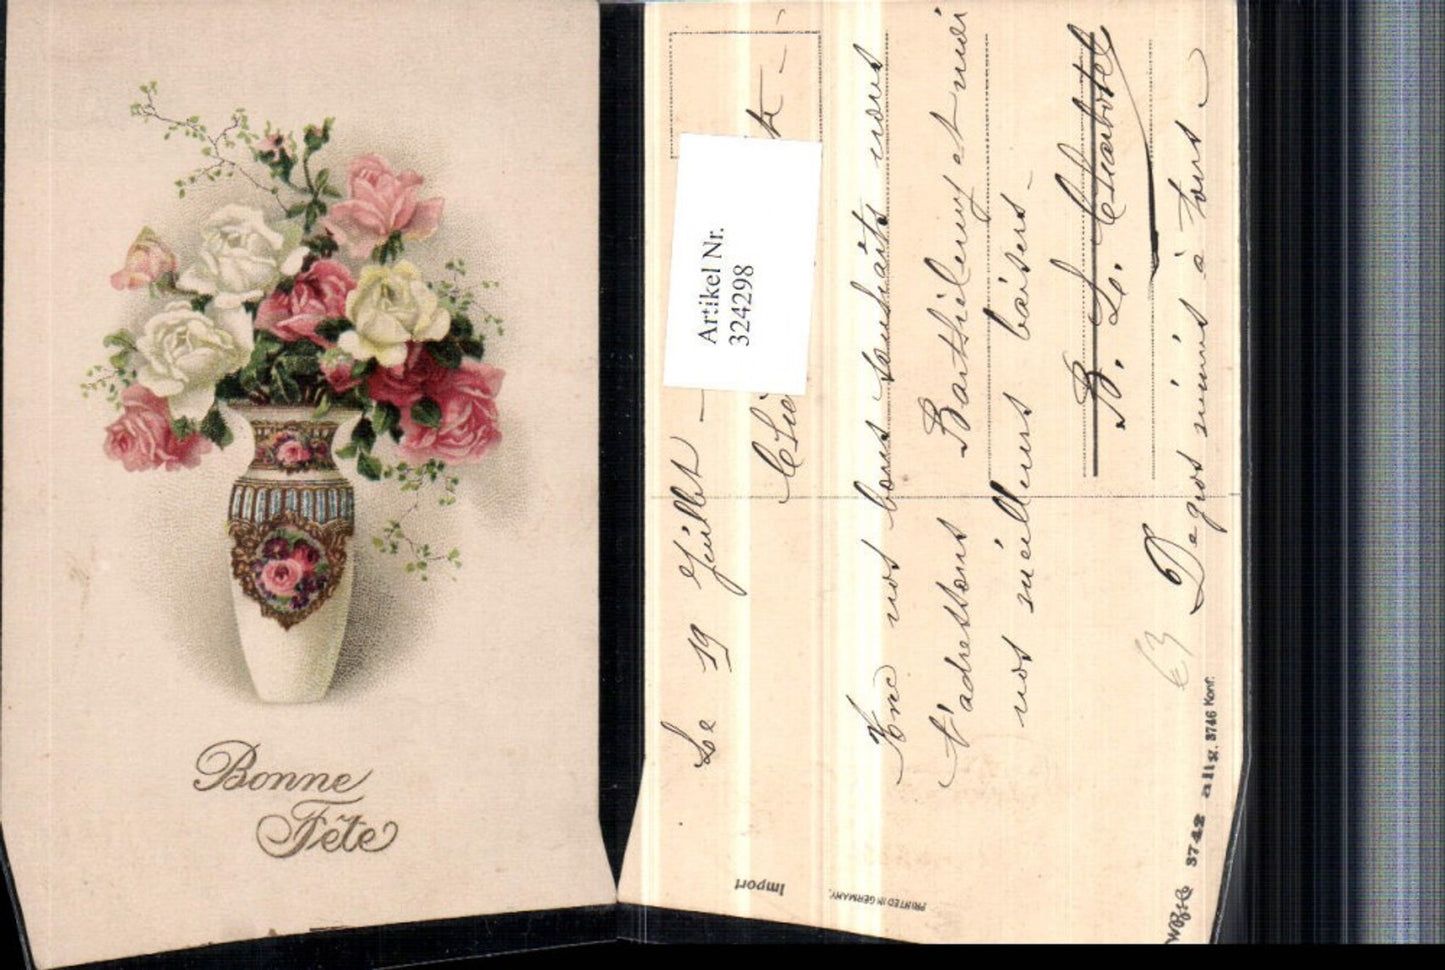 Bonne
Fête
Artikel Nr.
324298
Le 19 Juillet –
Que nos bons souhaits nous
t'adressons Barthélemy et moi
nos meilleurs baisers –
B. L.
Degros mimis à tous –
63
Import
PRINTED IN GERMANY.
3742 allg. 3746 Konf.